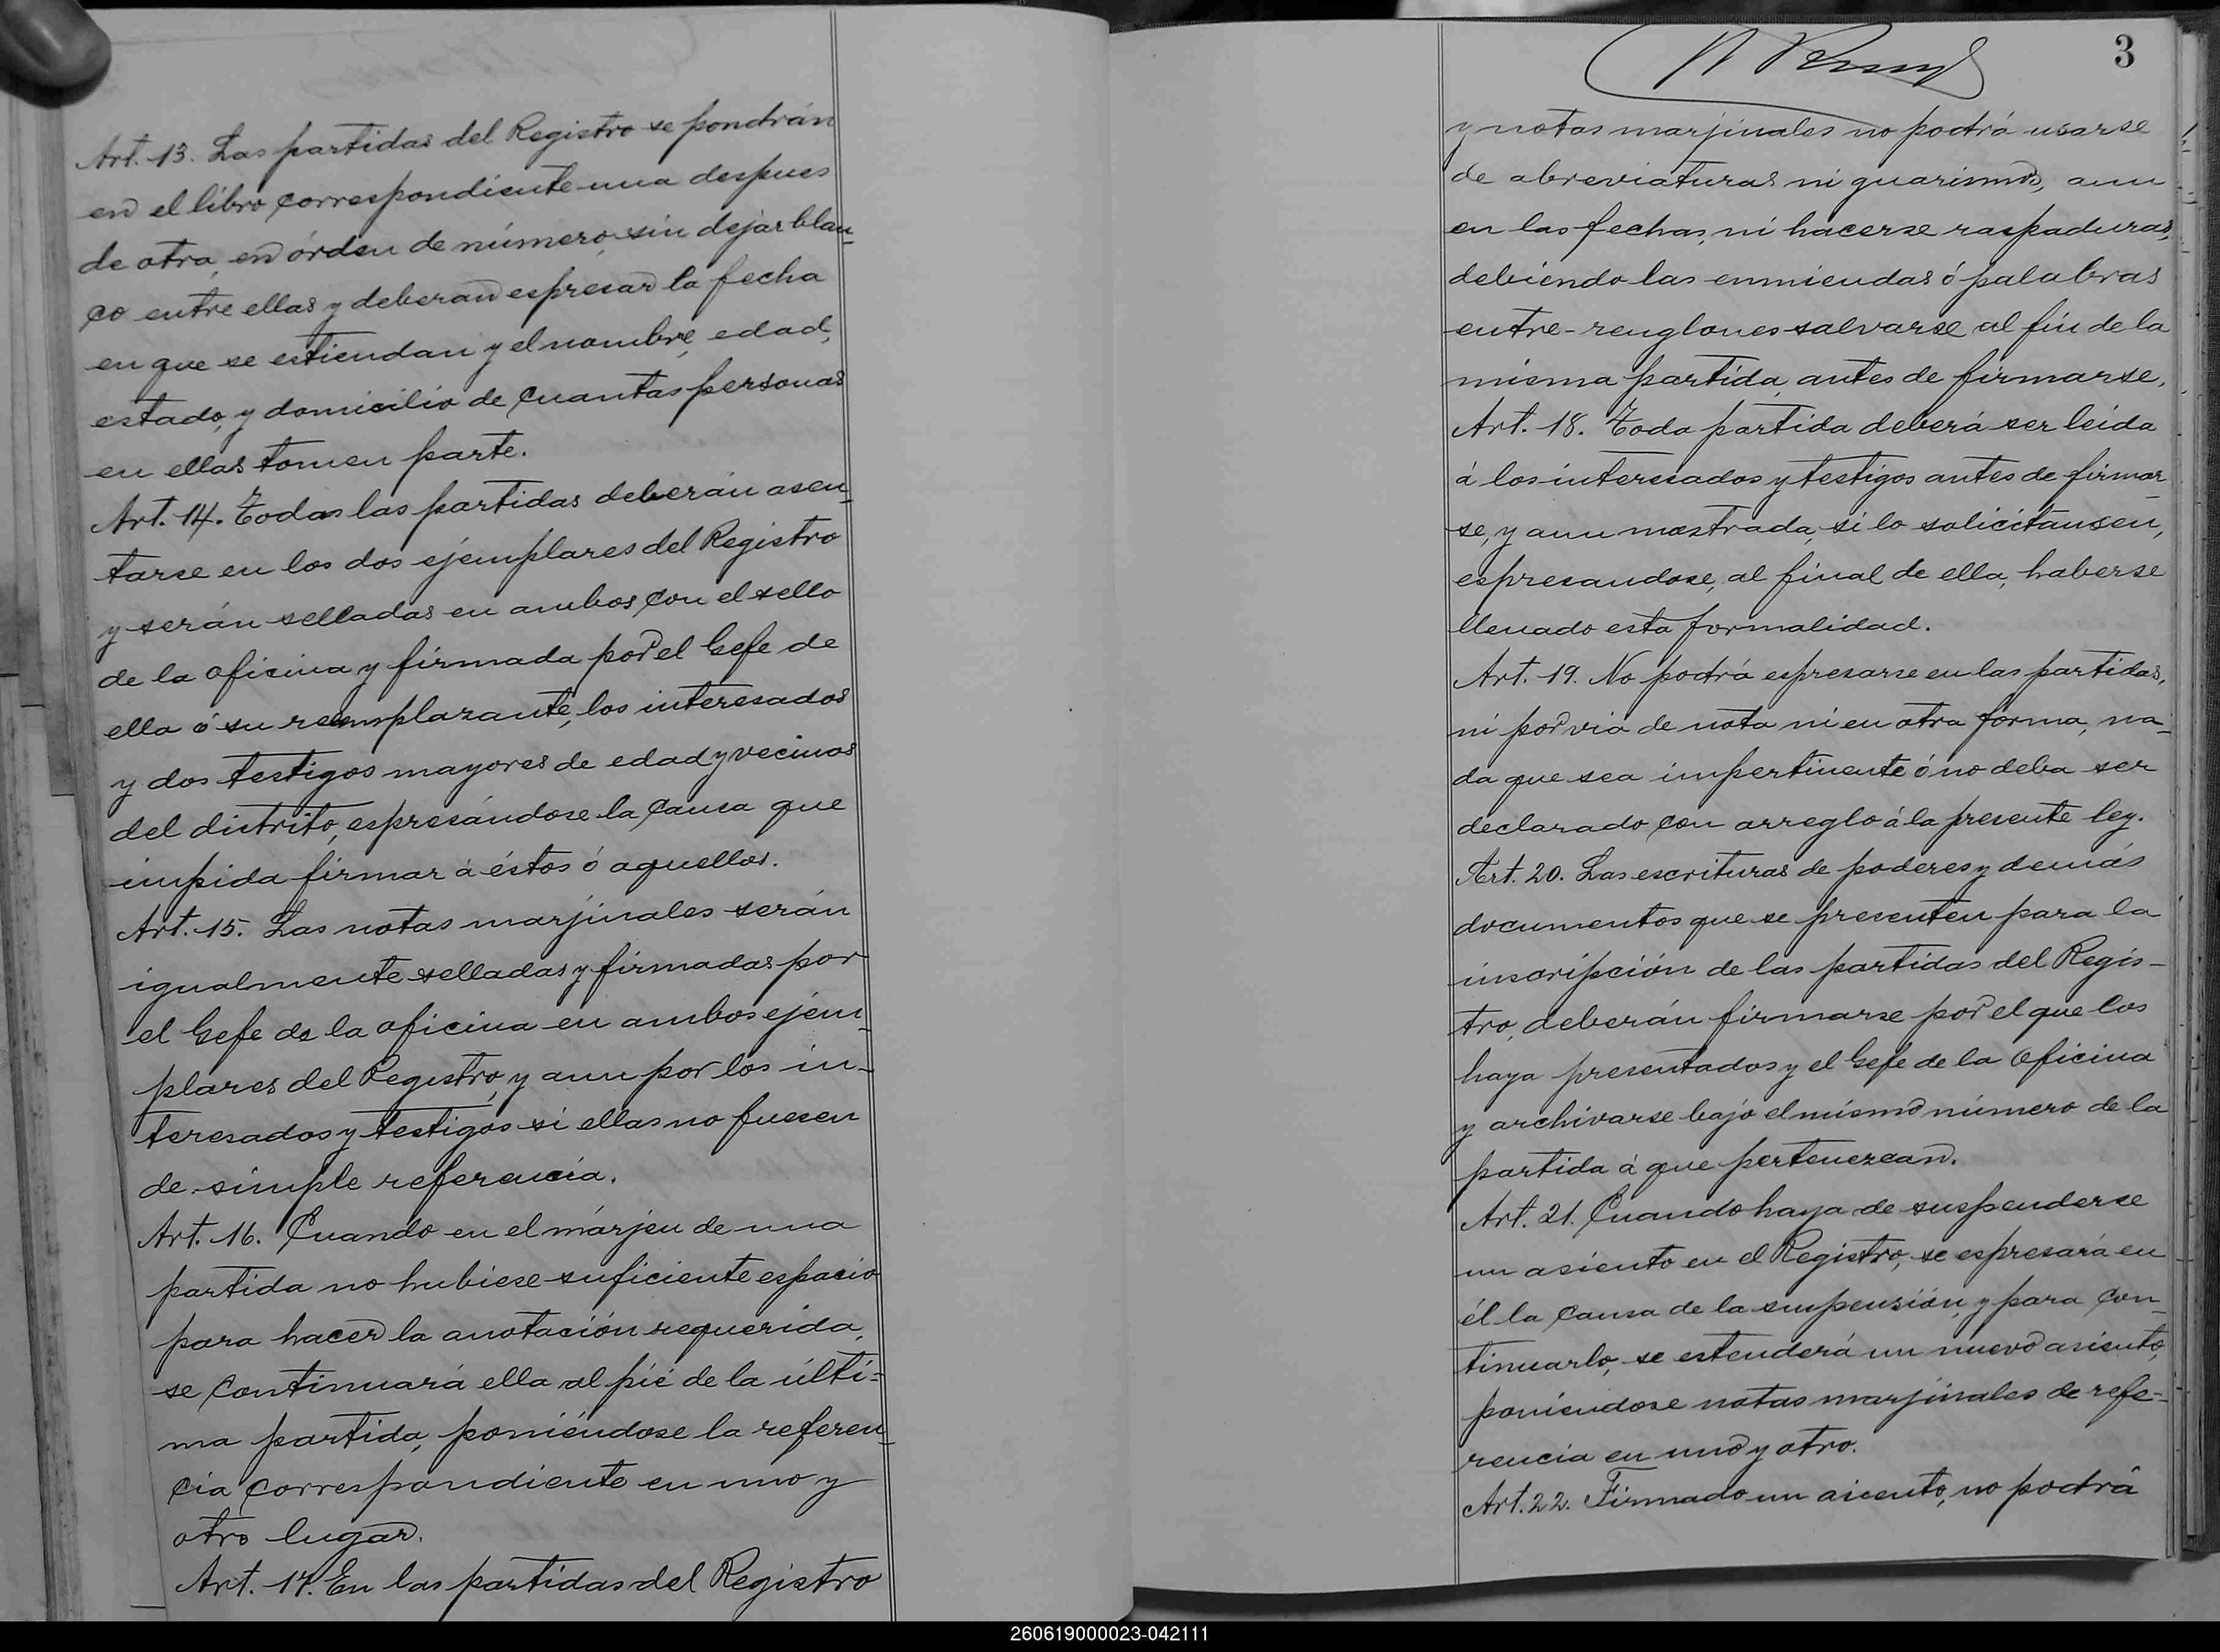 Art. 13. Las partidas del Registro se pondrán
en el libro correspondiente una despues
de otra, en órden de número, sin dejar blan-
co entre ellas y deberan espresar la fecha
en que se estiendan y el nombre, edad,
estado, y domicilio de cuantas personas
en ellas tomen parte.
Art. 14. Todas las partidas deberán asen-
tarse en los dos ejemplares del Registro
y serán selladas en ambos con el sello
de la oficina y firmada por el Gefe de
ella ó su reemplazante, los interesados
y dos testigos mayores de edad y vecinos
del distrito, espresándose la causa que
impida firmar á éstos ó aquellos.
Art. 15. Las notas marjinales serán
igualmente selladas y firmadas por
el Gefe de la oficina en ambos ejem-
plares del Registro, y aun por los in-
teresados y testigos si ellas no fuesen
de simple referencia.
Art. 16. Cuando en el márjen de una
partida no hubiese suficiente espacio
para hacer la anotación requerida,
se continuará ella al pié de la últi=
ma partida, poniéndose la referen-
cia correspondiente en uno y
otro lugar.
Art. 17. En las partidas del Registro
3
y notas marjinales no podrá usarse
de abreviaturas ni guarismos, aun
en las fechas, ni hacerse raspaduras,
debiendo las enmiendas ó palabras
entre-renglones salvarse al fin de la
misma partida, antes de firmarse.
Art. 18. Toda partida deberá ser leida
á los interesados y testigos antes de firmar-
se, y aun mostrada, si lo solicitansen,
espresandose, al final de ella, haberse
llenado esta formalidad.
Art. 19. No podrá espresarse en las partidas,
ni por via de nota ni en otra forma, na-
da que sea impertinente ó no deba ser
declarado con arreglo á la presente ley.
Art. 20. Las escrituras de poderes y demás
documentos que se presenten para la
inscripción de las partidas del Regis-
tro, deberán firmarse por el que los
haya presentados y el Gefe de la Oficina
y archivarse bajo el mismo número de la
partida á que pertenezcan.
Art. 21. Cuando haya de suspenderse
un asiento en el Registro, se espresará en
él la causa de la suspensión, y para con-
tinuarlo, se estenderá un nuevo asiento,
poniendose notas marjinales de refe-
rencia en uno y otro.
Art. 22. Firmado un asiento, no podrá
260619000023-042111